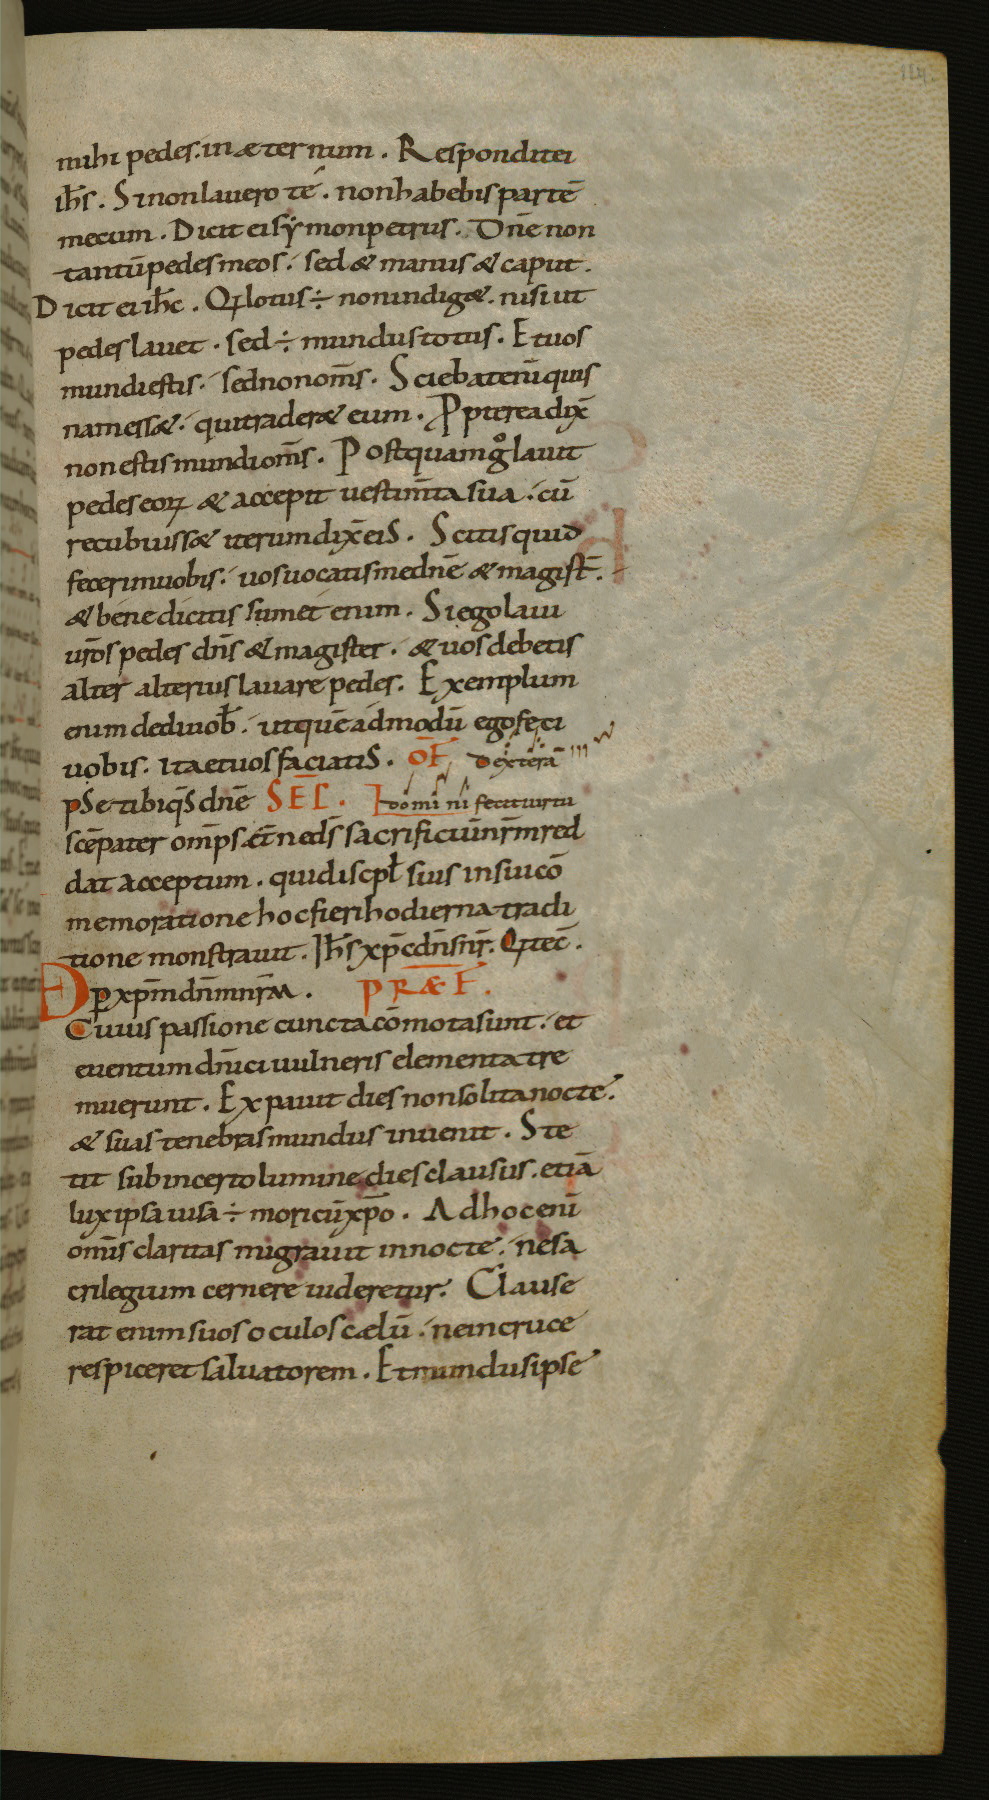 114.
mihi pedes. in æternum. Respondit ei
ih̅s. Si non lauero te. non habebis parte̅
mecum. Dicit ei sẏmon petrus. Dn̅e non
tantu̅ pedes meos. sed & manus & caput.
Dicit ei ih̅c. Q̣ lotus ÷ non indig&. nisi ut
pedes lauet. sed ÷ mundus totus. Et uos
mundi estis. sed non om̅s. Sciebat eni̅ quis
nam ess&. qui trader& eum. P̱pterea dix̅
non estis mundi om̅s. Postquam g̊ lauit
pedes eoꝝ & accepit uestim̅ta sua. cu̅
recubuiss& iterum dix̅ eis. Scitis quid
fecerim uobis. uos uocatis me dn̅e & magist̅.
& bene dicitis sum et enim. Si ego laui
ur̅os pedes dn̅s & magister. & uos debetis
alter alterius lauare pedes. Exemplum
enim dedi uob̅. ut que̅admodu̅ ego feci
uobis. ita et uos faciatis. OF̅ Dextera̅
pSe tibi qs̅ dn̅e SEC̅. domini fecit uirtu
sce̅ pater om̅ps æt̅ne ds̅ sacrificiu̅ nr̅m red
dat acceptum. qui discpl̅ suis in sui co̅
memoratione hoc fieri hodierna tradi
tione monstrauit. Ih̅s xp̅c dn̅s nr̅. Q̣ tec̅.
D ꝑ xp̅m dn̅m nr̅m. PRÆF̅.
Cuius passione cuncta co̅mota sunt. et
euentum dn̅ici uulneris elementa tre
muerunt. Expauit dies non solita nocte.
& suas tenebras mundus inuenit. Ste
tit sub incerto lumine dies clausus. etia̅
lux ipsa uisa ÷ mori cu̅ xp̅o. Ad hoc eni̅
om̅is claritas migrauit in nocte. ne sa
crilegium cernere uideretur. Clause
rat enim suos oculos cælu̅. ne in cruce
respiceret saluatorem. Et mundus ipse